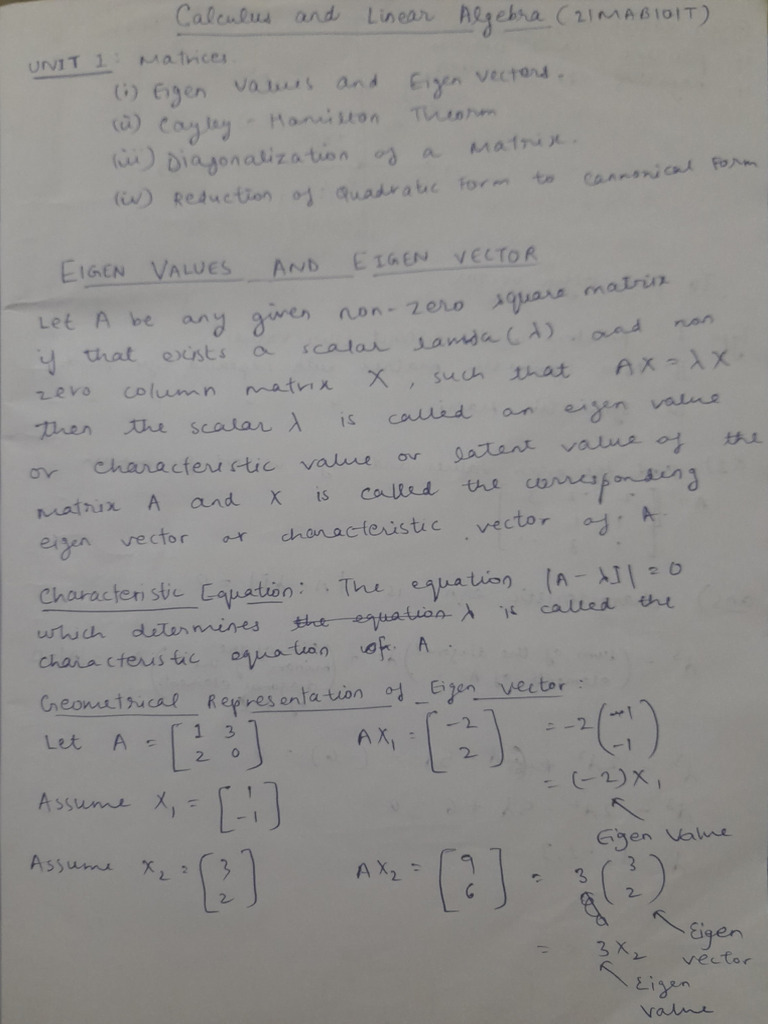 Calculus and Linear Algebra (21MAB101T)
UNIT I: Matrices.
(i) Eigen Values and Eigen Vectors.
(ii) Cayley-Hamilton Theorem
(iii) Diagonalization of a Matrix.
(iv) Reduction of Quadratic form to Cannonical form
EIGEN VALUES AND EIGEN VECTOR
Let A be any given non-zero square matrix
if that exists a scalar lamda (λ) and non
zero column matrix X, such that AX = λX.
Then the scalar λ is called an eigen value
or characteristic value or latent value of the
matrix A and X is called the corresponding
eigen vector or characteristic vector of A.
Characteristic Equation: The equation |A - λI| = 0
which determines the equation λ is called the
characteristic equation of A.
Geometrical Representation of Eigen Vector:
Let A = [1 3; 2 0] AX₁ = [-2; 2] = -2(1; -1)
= (-2)X₁
Assume X₁ = [1; -1]
Eigen Value
Assume X₂ = [3; 2] AX₂ = [9; 6] = 3(3; 2)
Eigen vector
= 3X₂
Eigen value